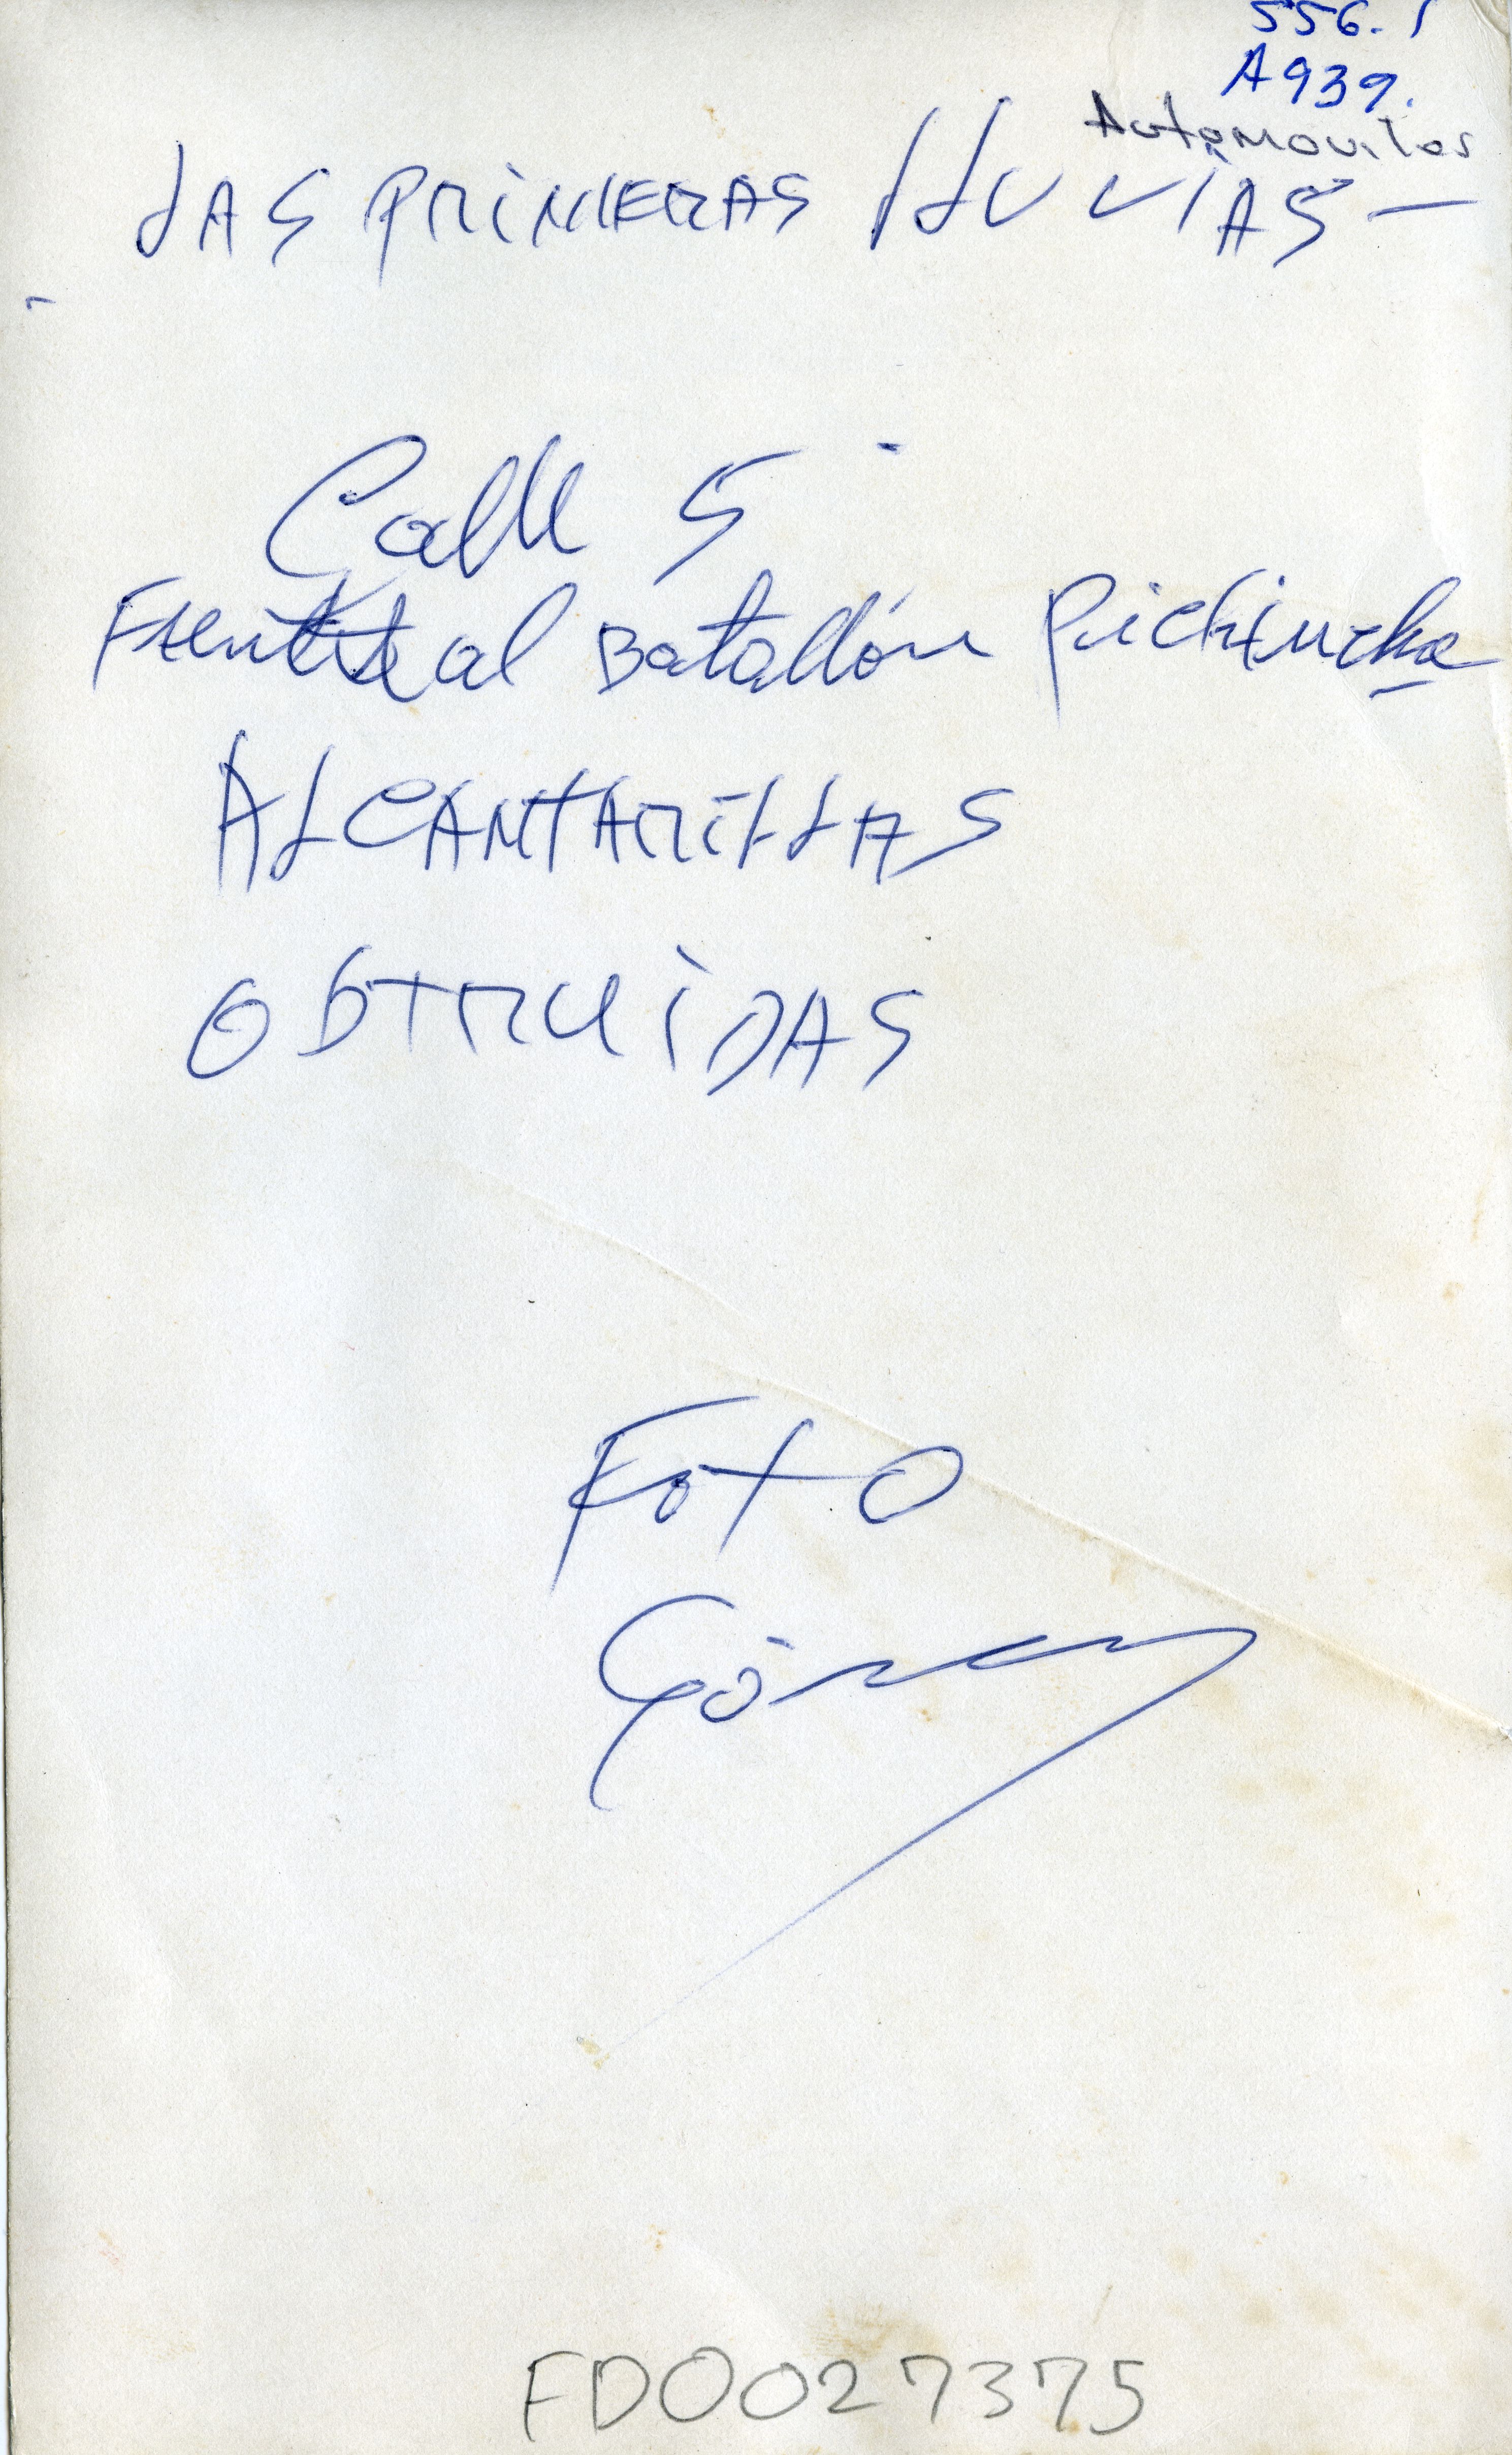 556.1
A939.
Automoviles
LAS PRIMERAS LLUVIAS —
Calle 5
Frente al Batallón Pichincha
ALCANTARILLAS
OBTRUIDAS
Foto
Gómez
FD0027375